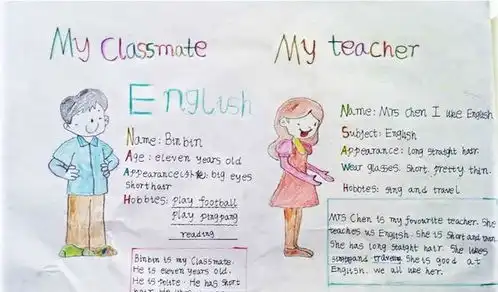 My Classmate
English
Name: Binbin
Age: eleven years old
Appearance(外貌): big eyes
Short hair
Hobbies: play football
play pingpang
reading
Binbin is my classmate.
He is eleven years old.
He is polite. He has short
hair. He likes
My teacher
Name: Mrs Chen I like English
Subject: English
Appearance: long straight hair.
Wear glasses. Short, pretty thin.
Hobbies: sing and travel
Mrs Chen is my favourite teacher. She
teaches us English. She is Short and thin.
She has long staight hair. She likes
singing and traveing. She is good at
English. we all like her.